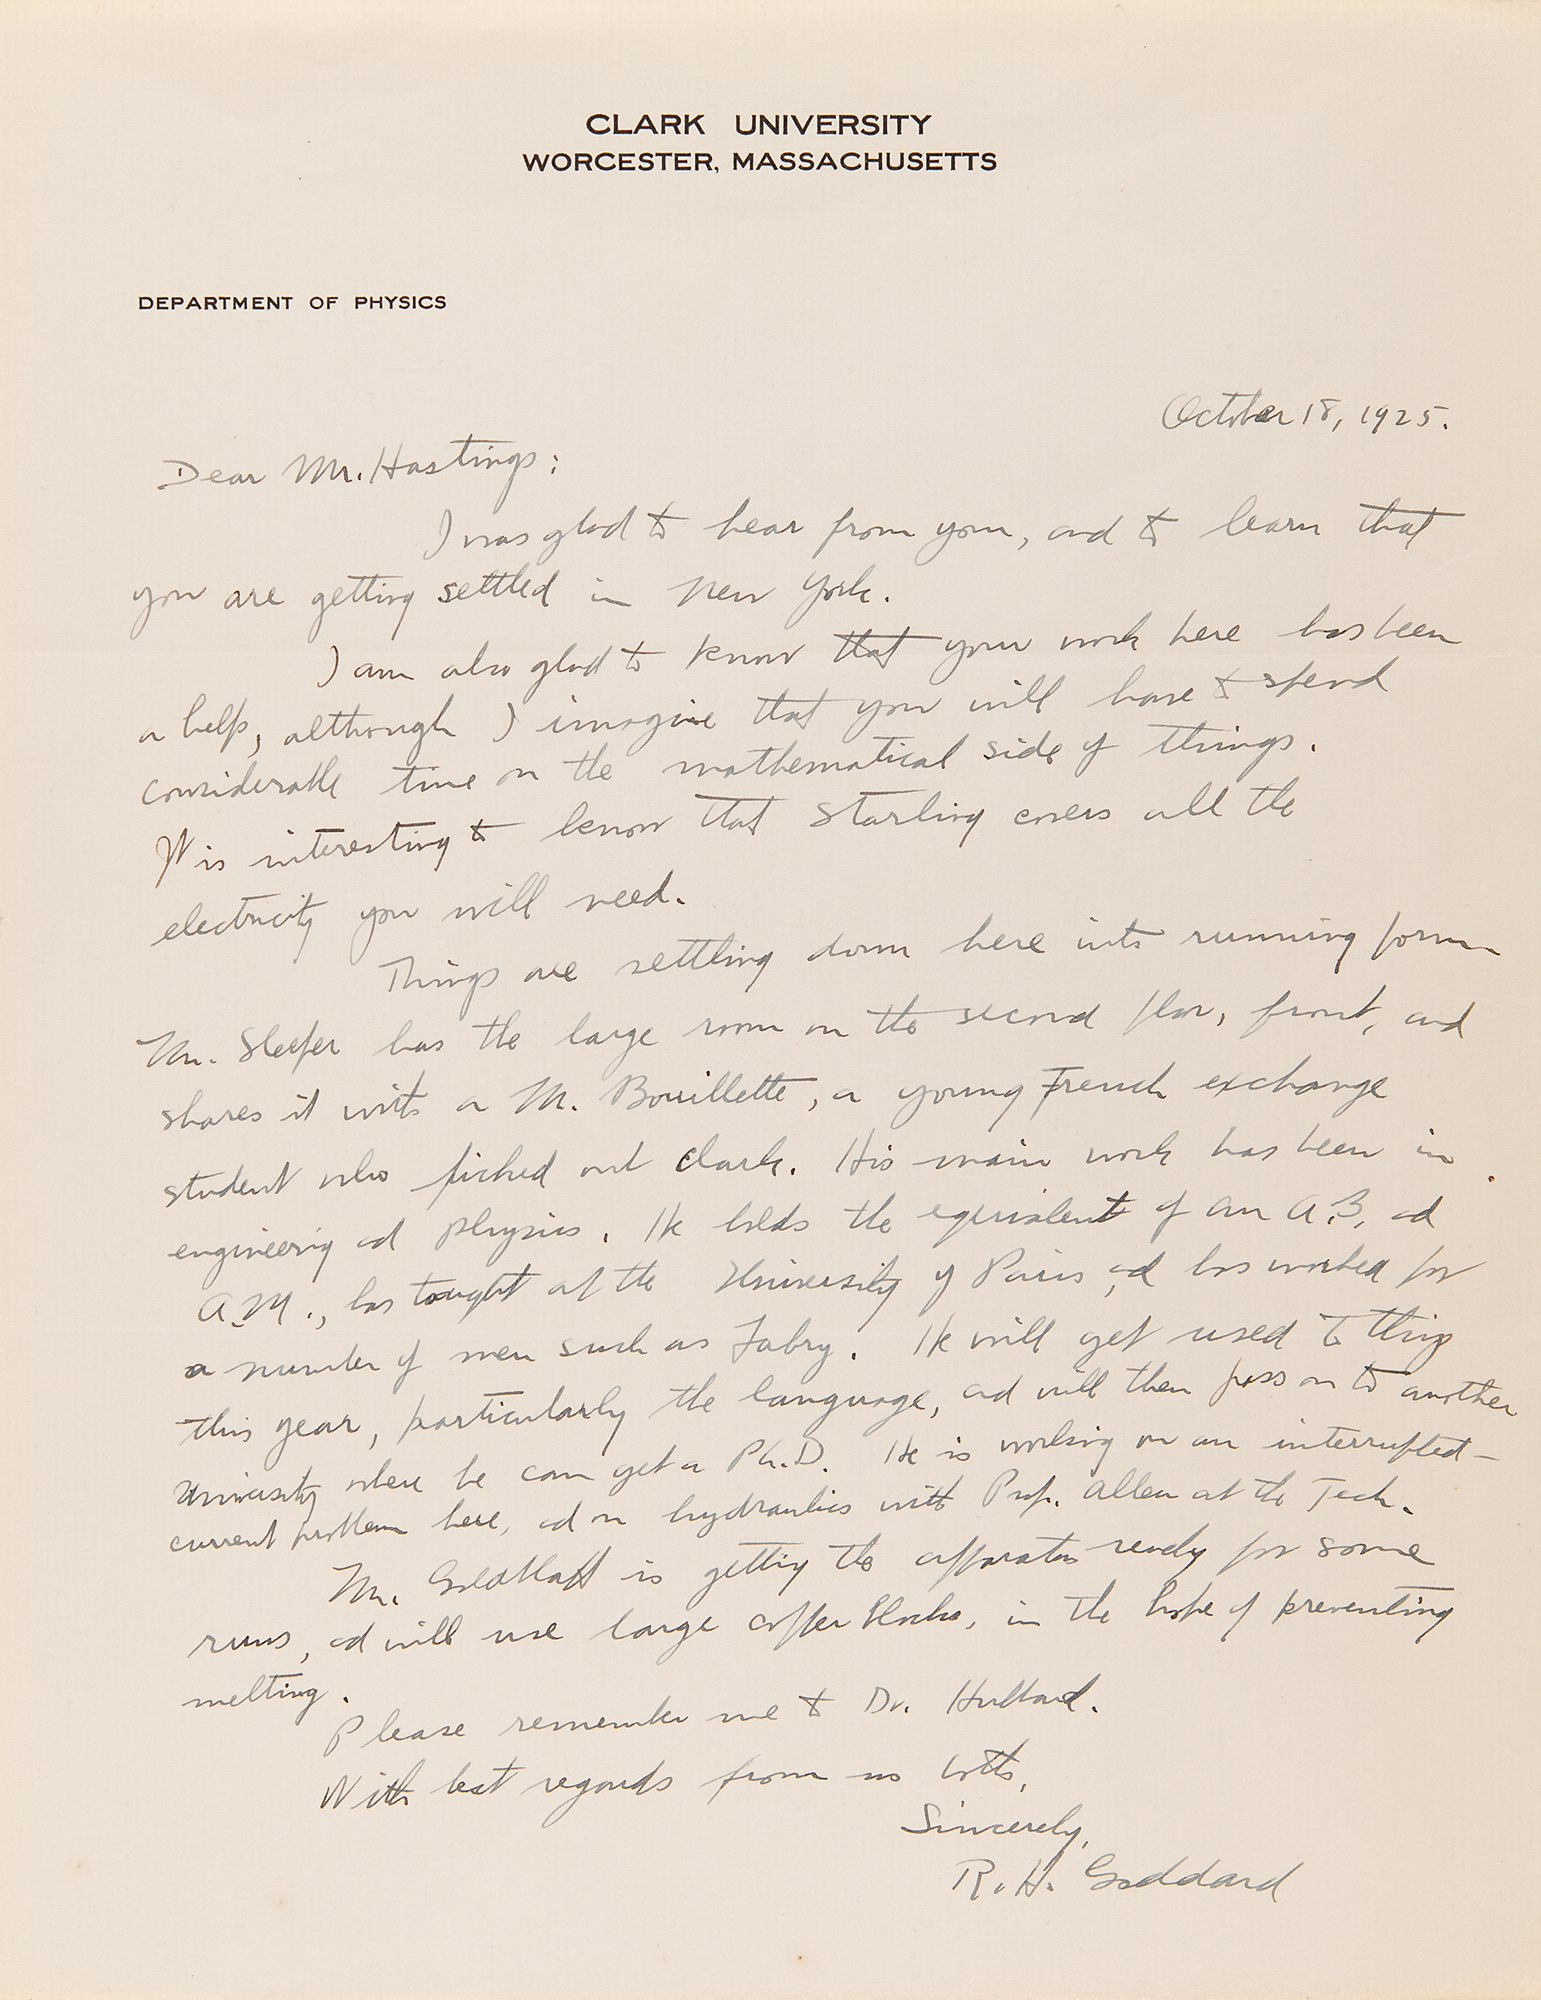 CLARK UNIVERSITY
WORCESTER, MASSACHUSETTS
DEPARTMENT OF PHYSICS
October 18, 1925.
Dear Mr. Hastings:
I was glad to hear from you, and to learn that
you are getting settled in New York.
I am also glad to know that your work here has been
a help, although I imagine that you will have to spend
considerable time on the mathematical side of things.
It is interesting to know that Starling covers all the
electricity you will need.
Things are settling down here into running form
Mr. Sleeper has the large room on the second floor, front, and
shares it with a M. Bouillette, a young French exchange
student who picked out Clark. His main work has been in
engineering and physics. He holds the equivalent of an A.B, and
A.M., has taught at the University of Paris and has worked for
a number of men such as Fabry. He will get used to things
this year, particularly the language, and will then pass on to another
University where he can get a Ph.D. He is working on an interrupted-
current problem here, and on hydraulics with Prof. Allen at the Tech.
Mr. Goldblatt is getting the apparatus ready for some
runs, and will use large copper blocks, in the hope of preventing
melting.
Please remember me to Dr. Hubbard.
With best regards from us both,
Sincerely,
R. H. Goddard